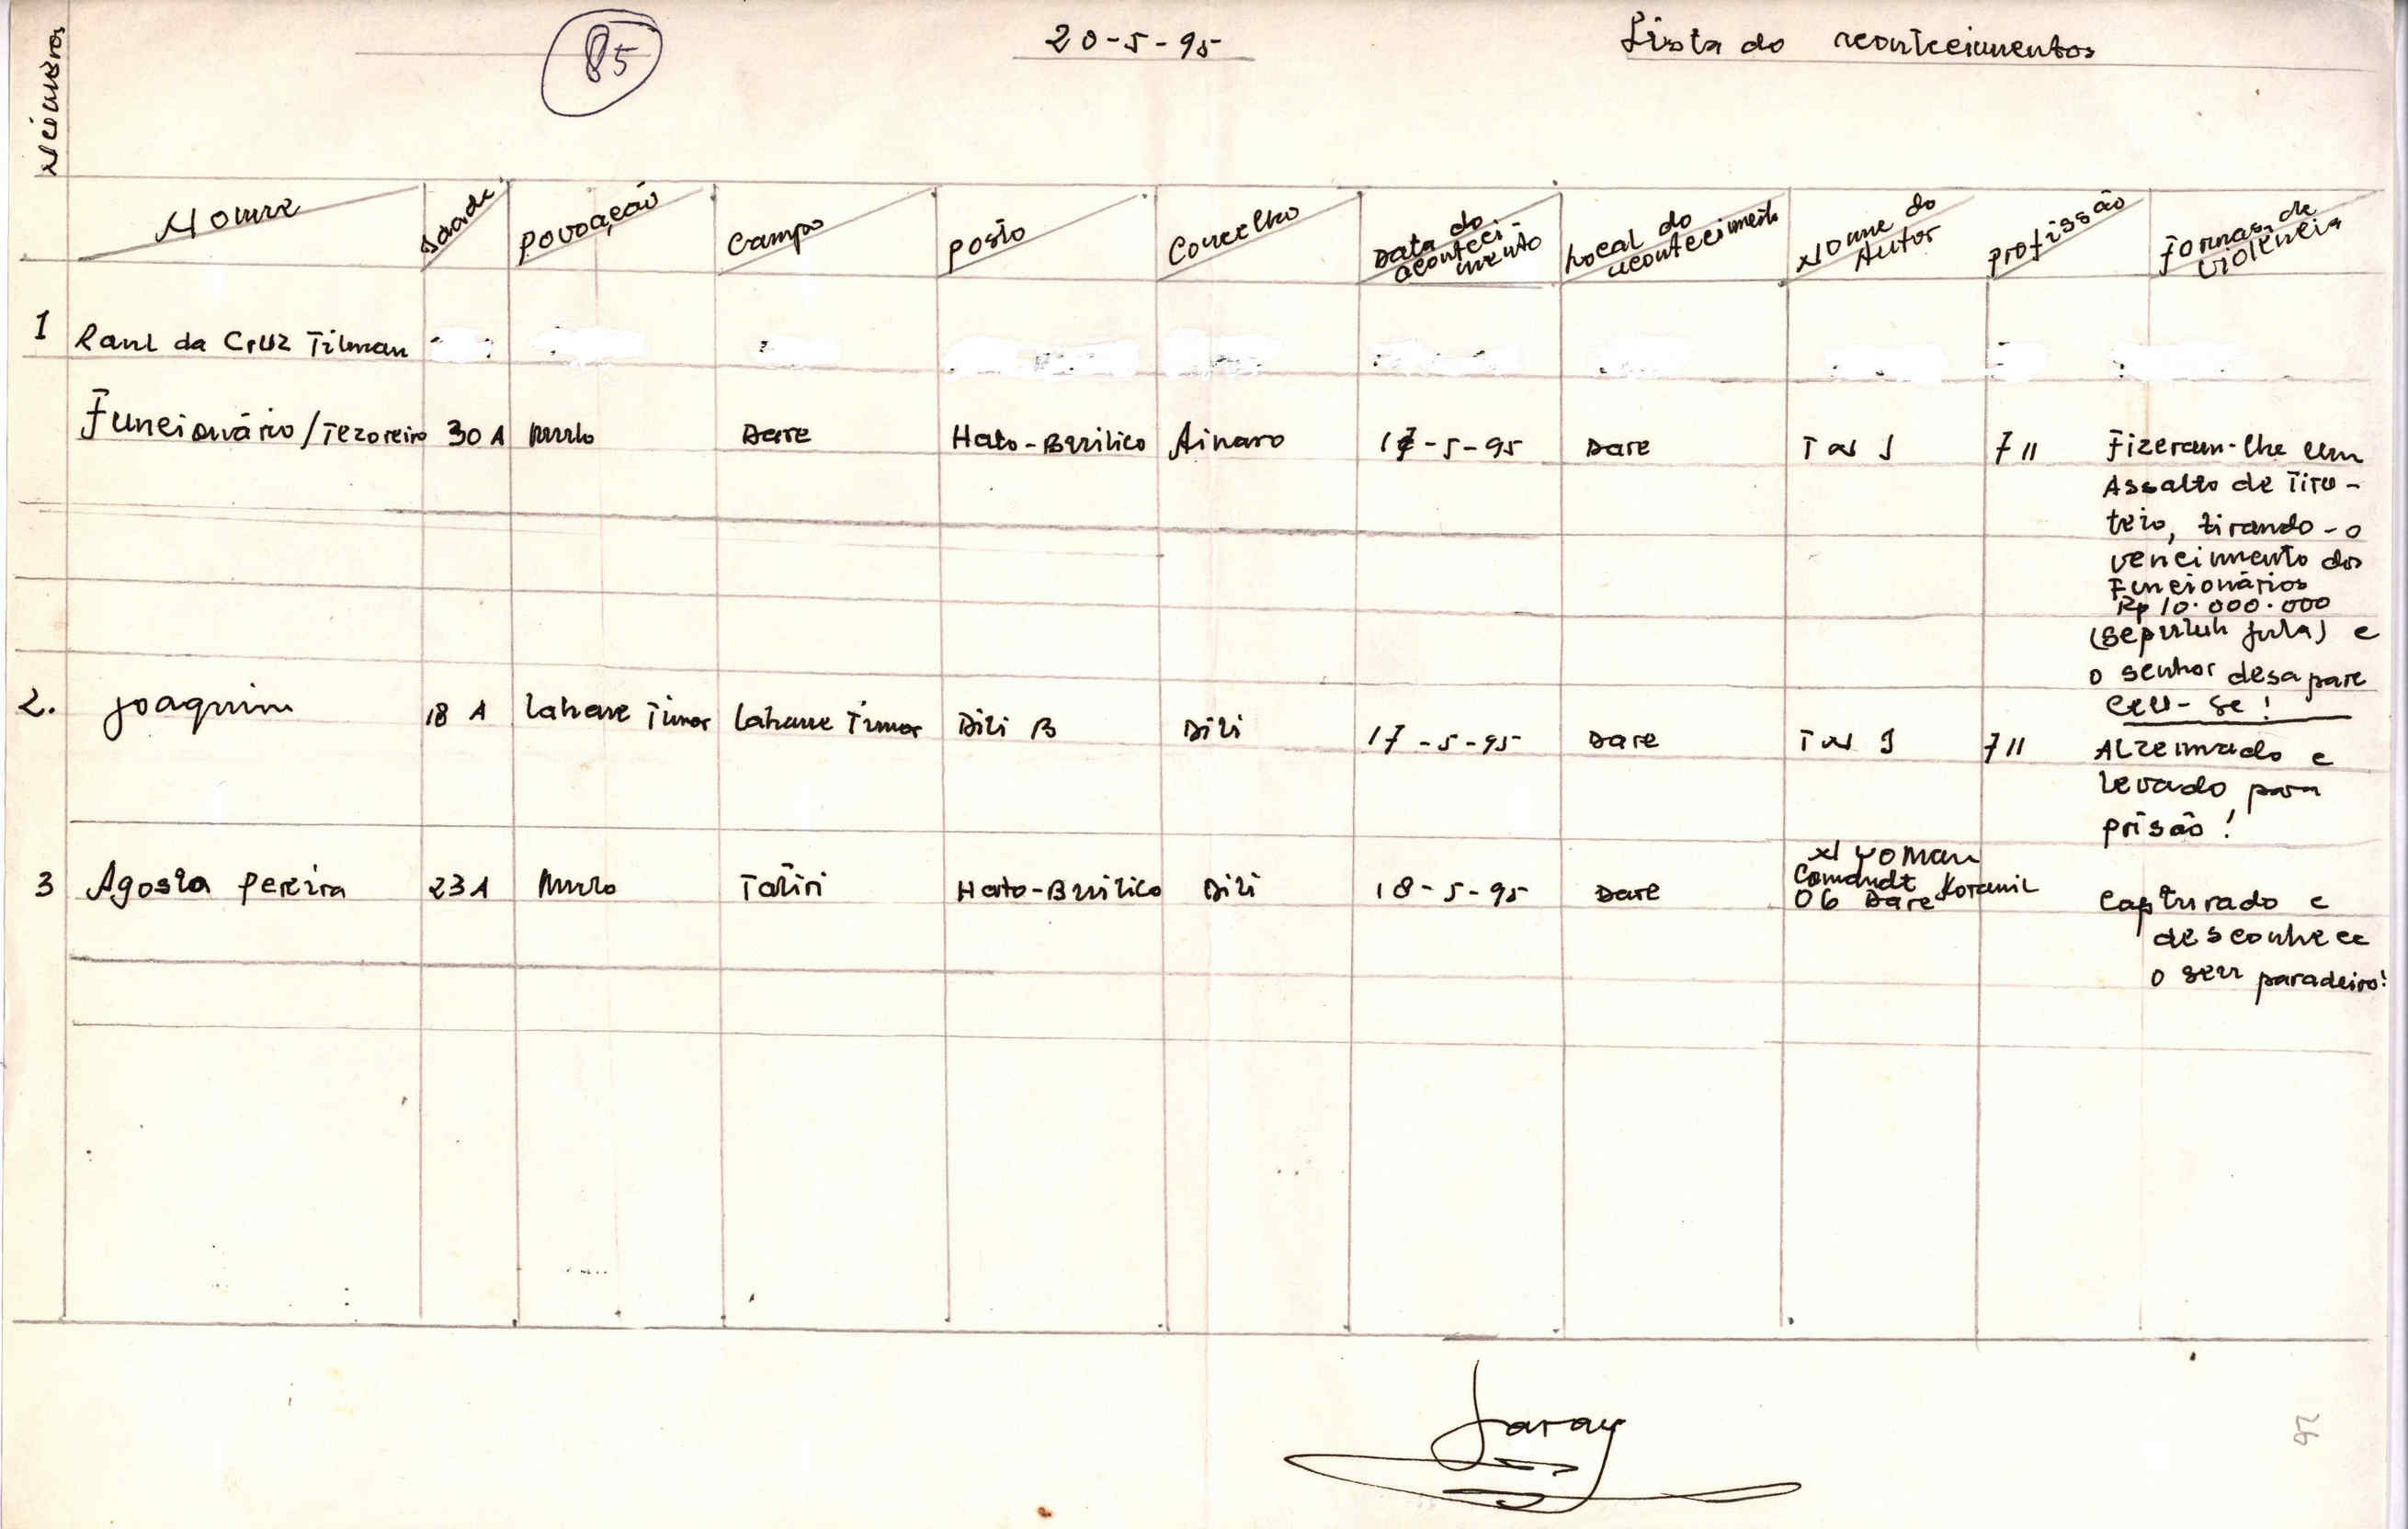 Números
85
20-5-95
Lista do acontecimentos
Nome
Idade
Povoação
Campo
Posto
Concelho
Data do
aconteci-
mento
Local do
acontecimento
Nome do
Autor
Profissão
Formas de
violência
1 Raul da Cruz Tilman
Funcionário/Tezoreiro 30 A Mulo Dare Hato-Builico Ainaro 17-5-95 Dare 711 Fizeram-lhe um
Assalto de Tiro-
teio, tirando-o
vencimento dos
Funcionários
Rp 10.000.000
(sepuluh juta) e
o senhor desapare
ceu-se!
2. Joaquim 18 A Lahane Timor Lahane Timor Dili B Dili 17-5-95 Dare 711 Algemado e
levado para
prisão!
3 Agosta Pereira 23 A Mulo Tatiri Hato-Builico Dili 18-5-95 Dare Nyoman
Comandt Koramil
06 Dare
Capturado e
desconhece
o seu paradeiro!